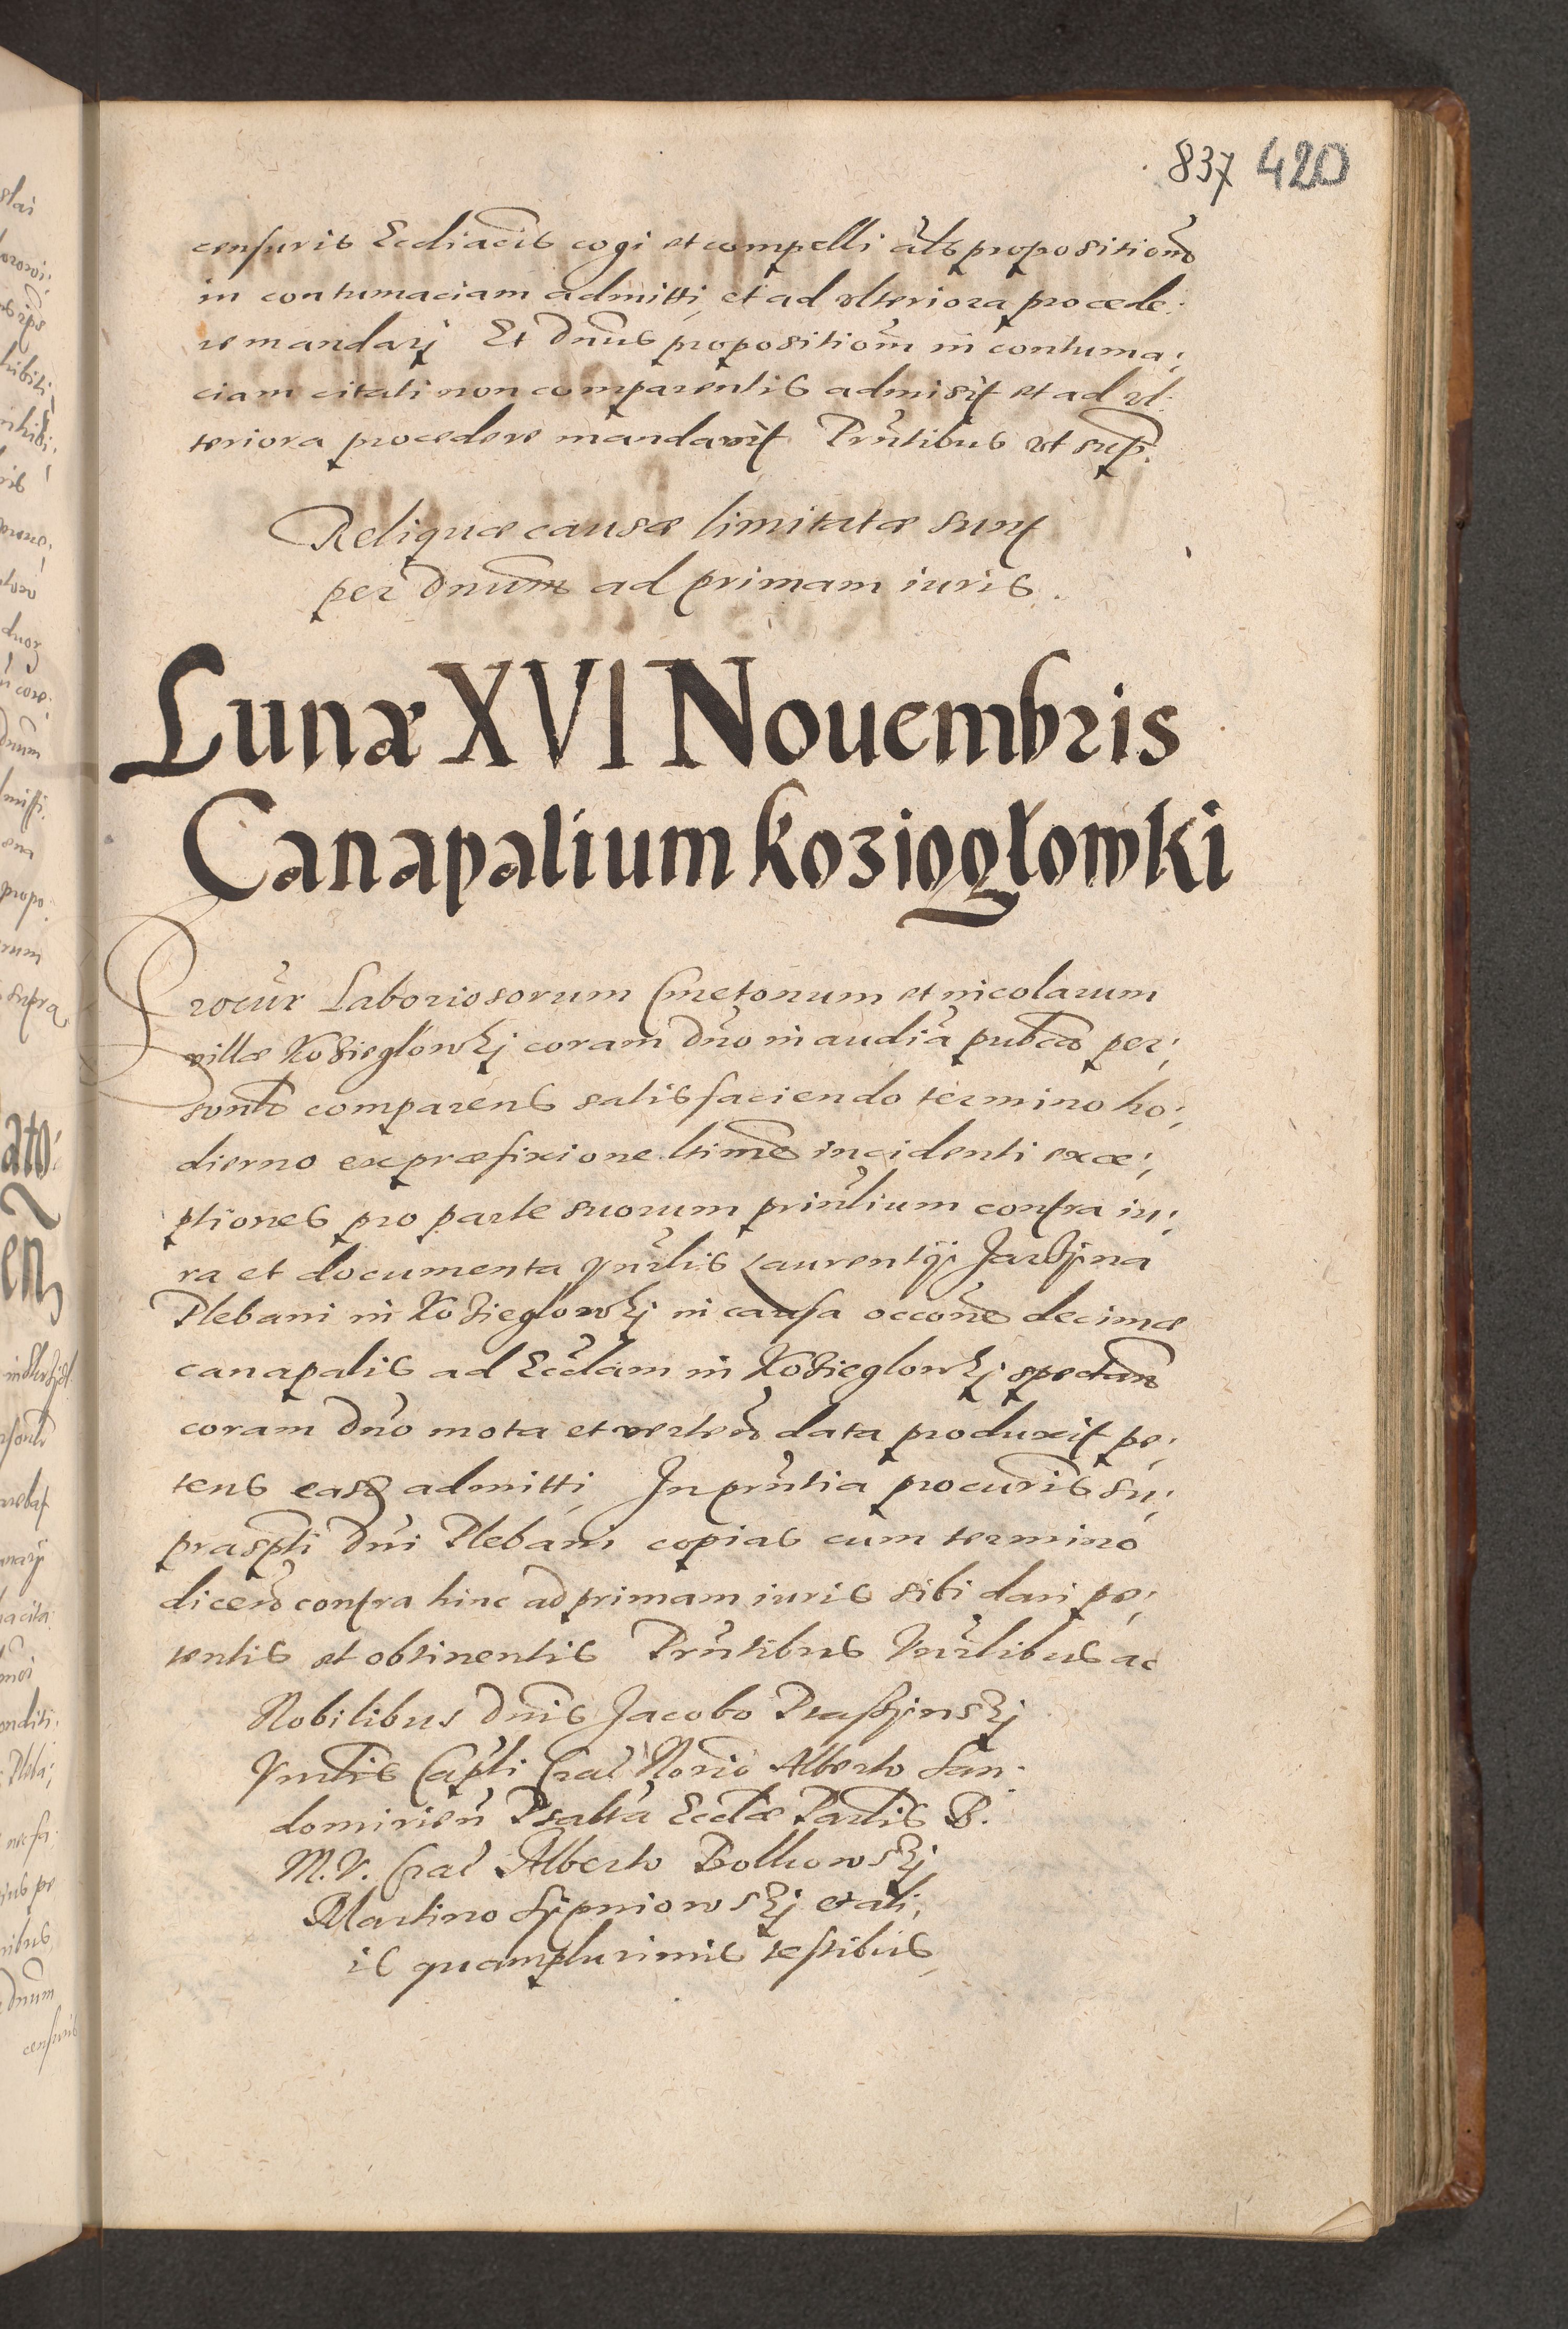 837 420
censuris Eccliacis cogi et compelli als propositione
in contumaciam admitti, et ad vlteriora procede:
re mandarj Et Dnus propositiom in contuma:
ciam citati non comparentis admisit et ad vl:
teriora procedere mandavit Prntibus vt sup.
Reliquæ causæ limitatæ sunt
per Dnum ad primam iuris.
Lunæ XVI Nouembris
Canapalium kozięgłowki
Procur Laboriosorum Cmetonum et incolarum
villæ Koziegłowkj coram Dno in audia publca per:
sonlr comparens satisfaciendo termino ho:
dierno ex præfixione ltima incidenti exce:
ptiones pro parte suorum prinlium contra iu:
ra et documenta Vnrlis Laurentij
Plebani in Koziegłowkj in causa occone decimæ
canapalis ad Ecclam in Koziegłowkj spectan
coram Dno mota et verten data produxit pe:
tens easq admitti, In prntia procuris su:
praspti Dni Plebani copias cum termino
dicen contra hinc ad primam iuris sibi dari pe:
tentis et obtinentis Prntibus Vnrlibus ac
Nobilibus Dnis Jacobo
Vnrlis Capli Crac Norio Alberto San:
domirien Psalta Ecclæ Parlis B.
M. V. Crac Alberto
Martino et ali:
is quamplurimis testibus